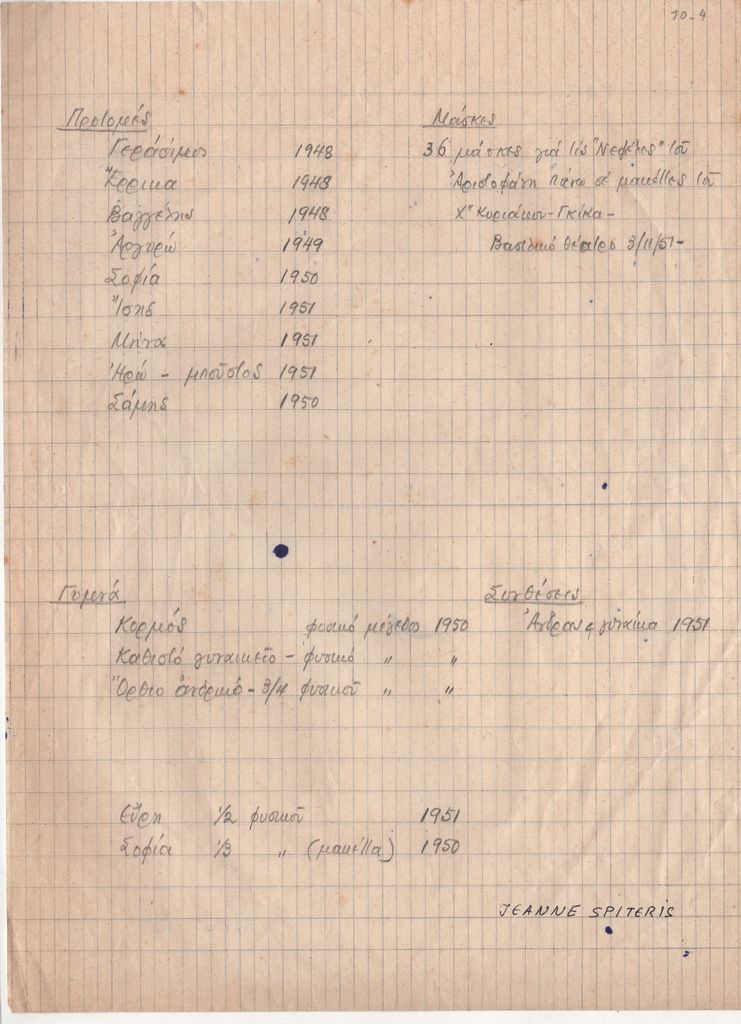 10-4
Προτομές
Γεράσιμος 1948
Ἔρρικα 1948
Βαγγέλης 1948
Ἀργυρώ 1949
Σοφία 1950
Ἴσης 1951
Μίνα 1951
Ἡρώ - μπούστος 1951
Σάμης 1950
Μάσκες
36 μάσκες γιά τίς "Νεφέλες" τοῦ
Ἀριστοφάνη πάνω σέ μακέττες τοῦ
Χ" Κυριάκου-Γκίκα-
Βασιλικό Θέατρο 3/11/51-
Γυμνά
Κορμός φυσικό μέγεθος 1950
Καθιστό γυναικεῖο - φυσικό " "
Ὄρθιο ἀνδρικό - 3/4 φυσικοῦ " "
Συνθέσεις
Ἄνδρας γυναίκα 1951
Εὔρη 1/2 φυσικοῦ 1951
Σοφία 1/3 " (μακέττα) 1950
JEANNE SPITERIS